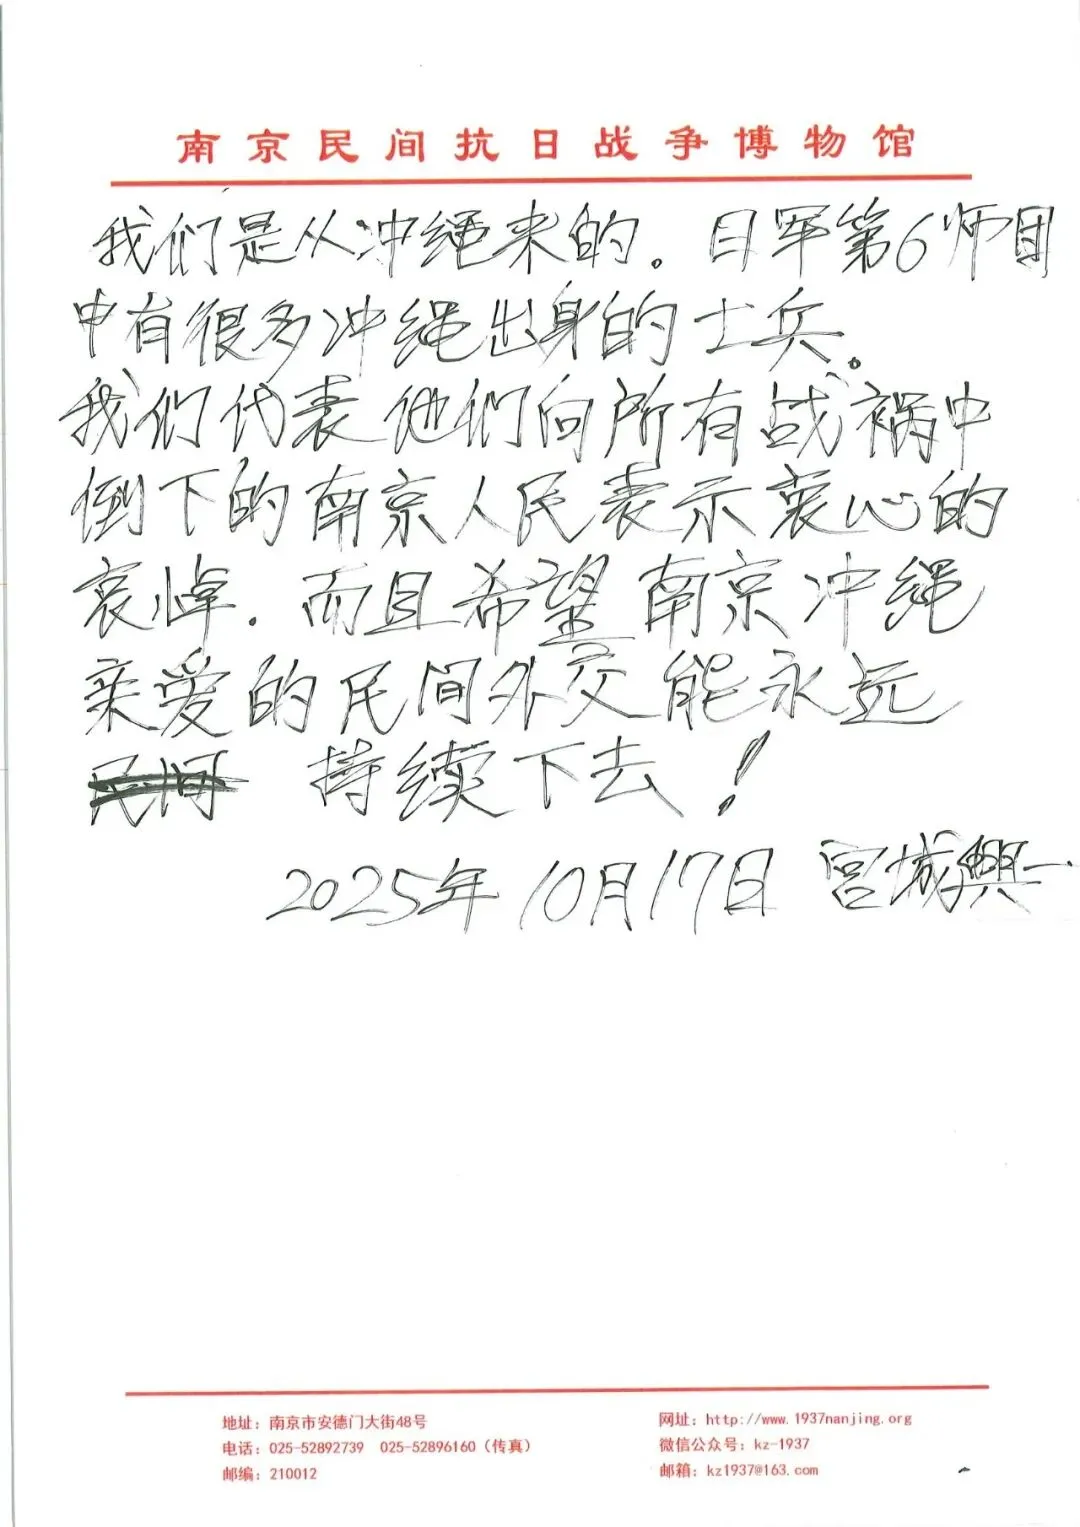 南京民间抗日战争博物馆
我们是从冲绳来的。日军第6师团
中有很多冲绳出身的士兵。
我们代表他们向所有战祸中
倒下的南京人民表示衷心的
哀悼.而且希望南京冲绳
亲爱的民间外交能永远
民间 持续下去！
2025年10月17日 宫城興一
地址：南京市安德门大街48号
电话：025-52892739 025-52896160（传真）
邮编：210012
网址：http://www.1937nanjing.org
微信公众号：kz-1937
邮箱：kz1937@163.com